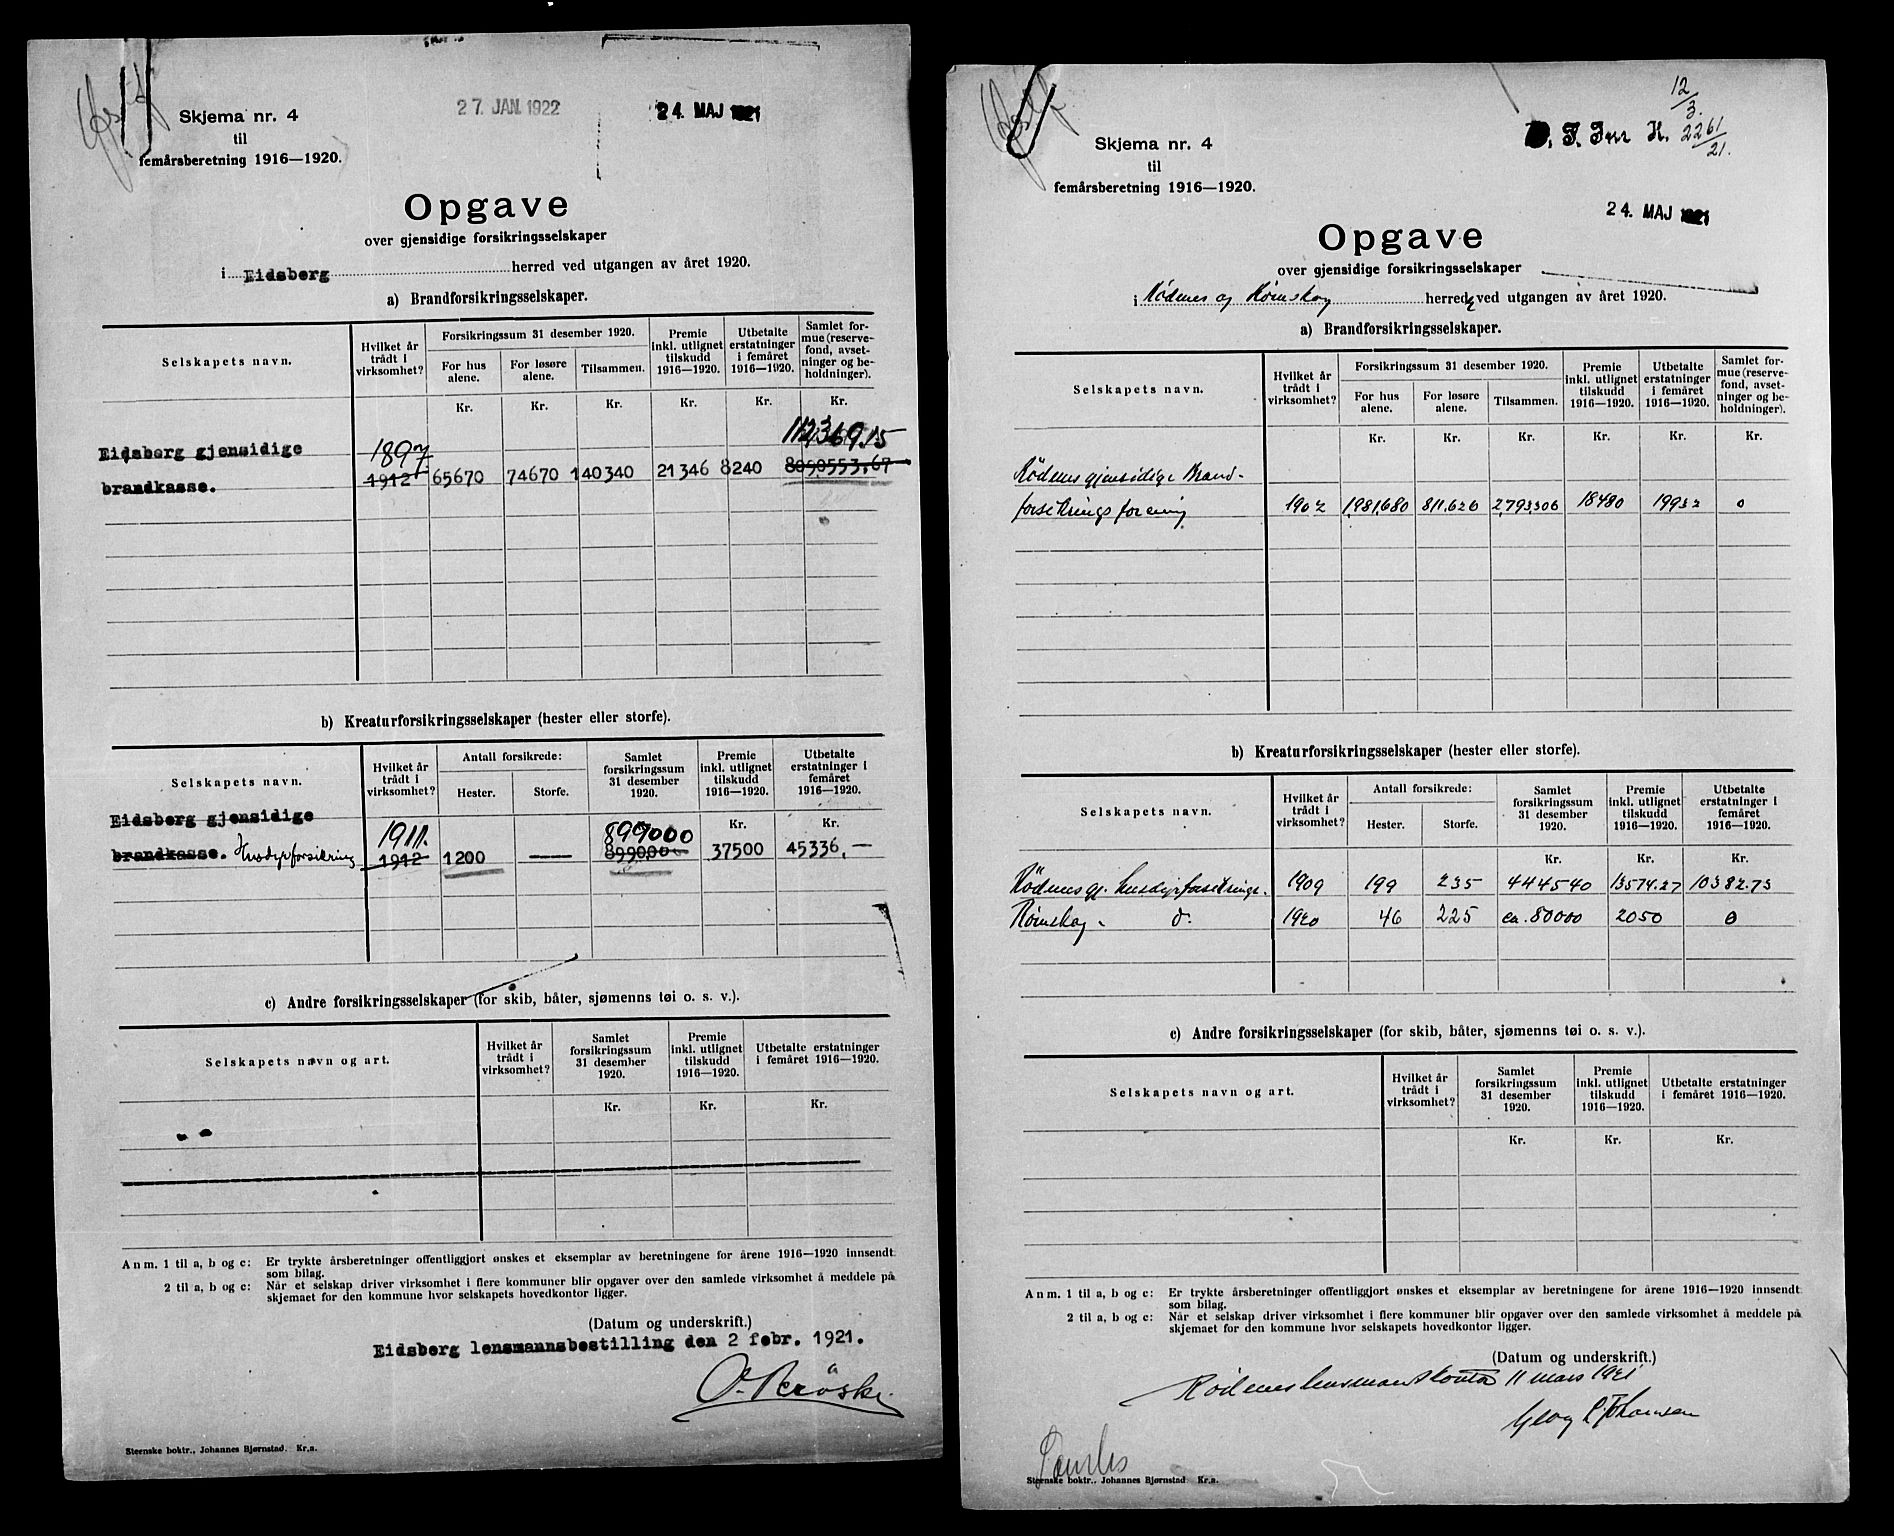 27 JAN. 1922
24. MAJ 1921
Skjema nr. 4
til
femårsberetning 1916—1920.
Opgave
over gjensidige forsikringsselskaper
i Eidsberg herred ved utgangen av året 1920.
a) Brandforsikringsselskaper.
Selskapets navn.
Hvilket år trådt i virksomhet?
Forsikringssum 31 desember 1920.
For hus alene.
For løsøre alene.
Tilsammen.
Premie inkl. utlignet tilskudd 1916—1920.
Utbetalte erstatninger i femåret 1916—1920.
Samlet formue (reservefond, avsetninger og beholdninger).
Kr. Kr. Kr. Kr. Kr. Kr.
112369.15
Eidsberg gjensidige 1897
brandkasse. 1912 65670 74670 140340 21346 8240 8090553.67
b) Kreaturforsikringsselskaper (hester eller storfe).
Selskapets navn.
Hvilket år trådt i virksomhet?
Antall forsikrede:
Hester.
Storfe.
Samlet forsikringssum 31 desember 1920.
Premie inkl. utlignet tilskudd 1916—1920.
Utbetalte erstatninger i femåret 1916—1920.
Kr. Kr.
Eidsberg gjensidige 1911. 899000
brandkasse. Husdyrforsikring 1912 1200 — 899000 37500 45336,—
c) Andre forsikringsselskaper (for skib, båter, sjømenns tøi o. s. v.).
Selskapets navn og art.
Hvilket år trådt i virksomhet?
Samlet forsikringssum 31 desember 1920.
Premie inkl. utlignet tilskudd 1916—1920.
Utbetalte erstatninger i femåret 1916—1920.
Kr. Kr. Kr.
Anm. 1 til a, b og c: Er trykte årsberetninger offentliggjort ønskes et eksemplar av beretningene for årene 1916—1920 innsendt
som bilag.
2 til a, b og c: Når et selskap driver virksomhet i flere kommuner blir opgaver over den samlede virksomhet å meddele på
skjemaet for den kommune hvor selskapets hovedkontor ligger.
(Datum og underskrift.)
Eidsberg lensmannsbestilling den 2 febr. 1921.
Steenske boktr., Johannes Bjørnstad. Kr.a.
12/3.
2261/21.
24. MAJ 1921
Skjema nr. 4
til
femårsberetning 1916—1920.
Opgave
over gjensidige forsikringsselskaper
i Rødenes og Rømskog herred ved utgangen av året 1920.
a) Brandforsikringsselskaper.
Selskapets navn.
Hvilket år trådt i virksomhet?
Forsikringssum 31 desember 1920.
For hus alene.
For løsøre alene.
Tilsammen.
Premie inkl. utlignet tilskudd 1916—1920.
Utbetalte erstatninger i femåret 1916—1920.
Samlet formue (reservefond, avsetninger og beholdninger).
Kr. Kr. Kr. Kr. Kr. Kr.
Rødenes gjensidige Brand-
forsikringsforening 1902 1,981,680 811,626 2,793,306 18480 19932 0
b) Kreaturforsikringsselskaper (hester eller storfe).
Selskapets navn.
Hvilket år trådt i virksomhet?
Antall forsikrede:
Hester.
Storfe.
Samlet forsikringssum 31 desember 1920.
Premie inkl. utlignet tilskudd 1916—1920.
Utbetalte erstatninger i femåret 1916—1920.
Kr. Kr. Kr.
Rødenes gj. husdyrforsikrings. 1909 199 235 444540 13574.27 10382.73
Rømskog - d. 1920 46 225 ca. 80000 2050 0
c) Andre forsikringsselskaper (for skib, båter, sjømenns tøi o. s. v.).
Selskapets navn og art.
Hvilket år trådt i virksomhet?
Samlet forsikringssum 31 desember 1920.
Premie inkl. utlignet tilskudd 1916—1920.
Utbetalte erstatninger i femåret 1916—1920.
Kr. Kr. Kr.
Anm. 1 til a, b og c: Er trykte årsberetninger offentliggjort ønskes et eksemplar av beretningene for årene 1916—1920 innsendt
som bilag.
2 til a, b og c: Når et selskap driver virksomhet i flere kommuner blir opgaver over den samlede virksomhet å meddele på
skjemaet for den kommune hvor selskapets hovedkontor ligger.
(Datum og underskrift.)
Rødenes lensmannskontor 11 mars 1921
Georg Johansen
Steenske boktr., Johannes Bjørnstad. Kr.a.